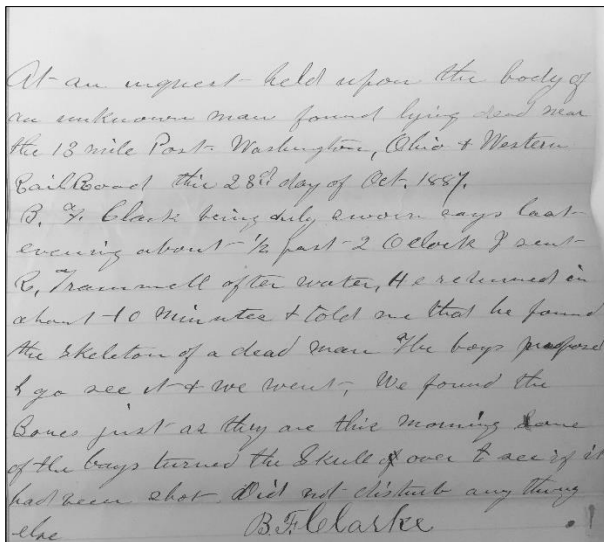 At an inquest held upon the body of
an unknown man found lying dead near
the 13 mile Post Washington, Ohio & Western
Rail Road this 28th day of Oct. 1887.
B. F. Clark being duly sworn says last
evening about ½ past 2 Oclock I sent
R, Trammell after water, He returned in
about 10 minutes & told me that he found
the Skeleton of a dead man The boys proposed
to go see it & we went, We found the
Bones just as they are this morning Some
of the boys turned the Skull over to see if it
had been shot. Did not disturb any thing
else
B. F. Clarke